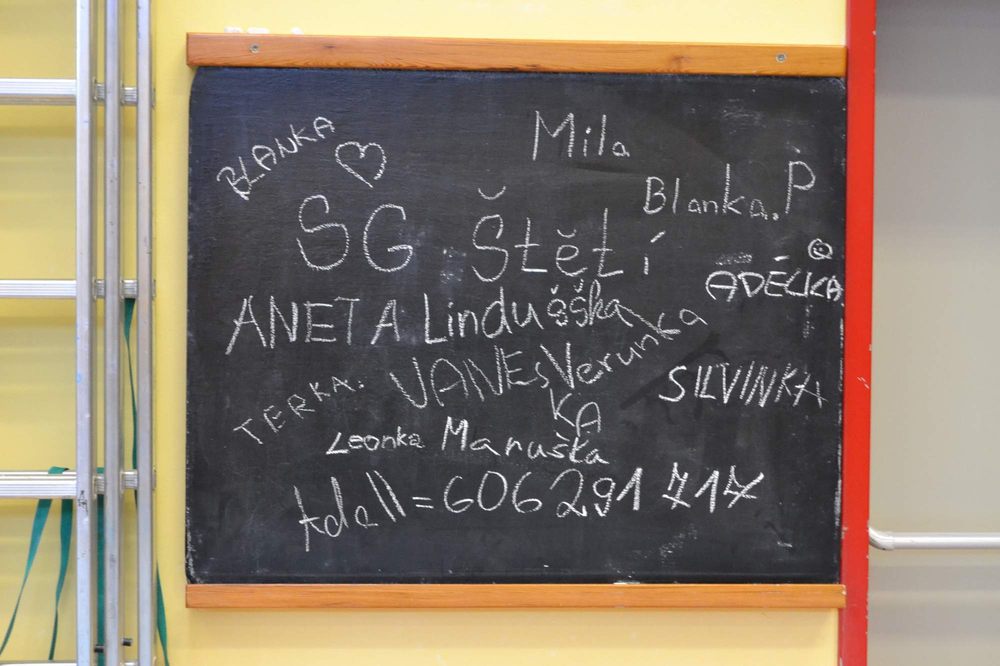 BLANKA
Mila
Blanka.P
SG Štětí
ADÉLKA
ANETA Lindušška Verunka
TERKA. VANESKA
SILVINKA
Leonka Maruška
Adell=606 291 717